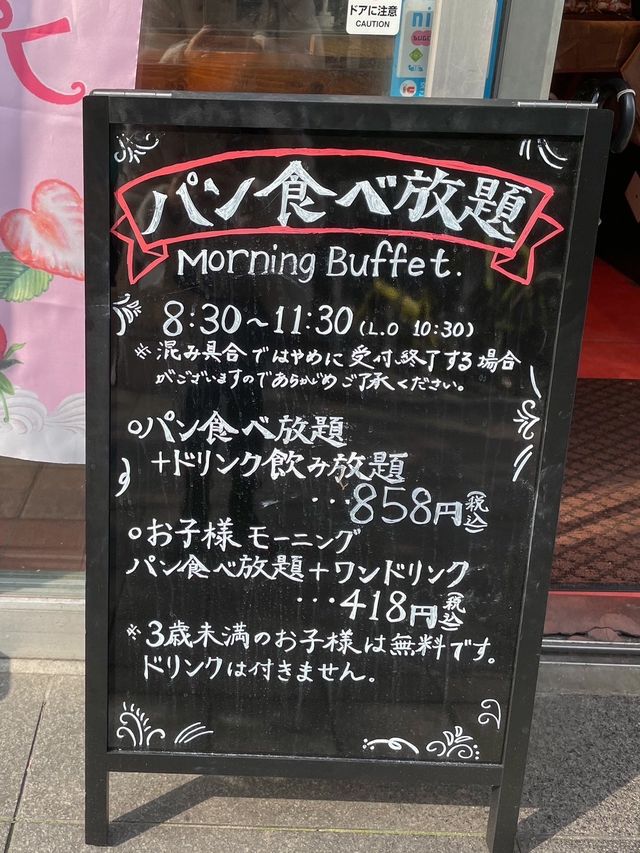 ドアに注意
CAUTION
パン食べ放題
Morning Buffet.
8:30～11:30 (L.O 10:30)
※混み具合ではやめに受付終了する場合
がございますのであらかじめご了承ください。
○パン食べ放題
+ドリンク飲み放題
･･･858円(税込)
○お子様モーニング
パン食べ放題+ワンドリンク
･･･418円(税込)
※3歳未満のお子様は無料です。
ドリンクは付きません。